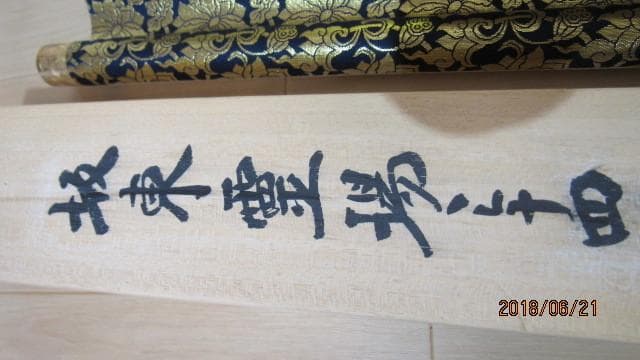 坂東霊場三十四
2018/06/21